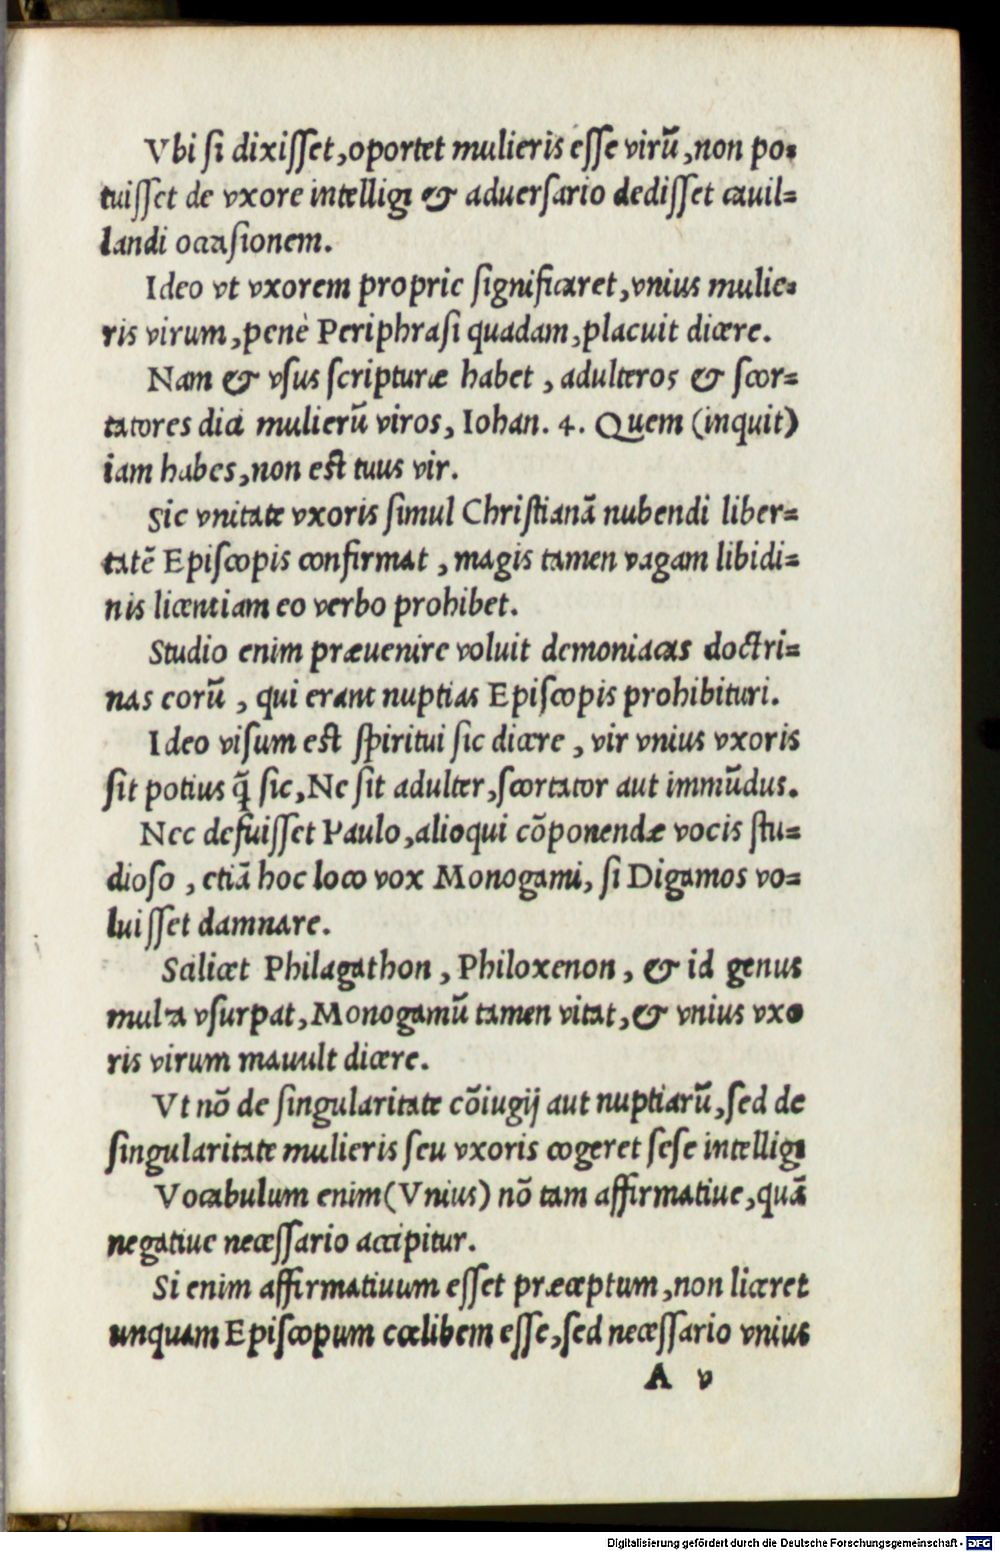 Vbi si dixisset, oportet mulieris esse virũ, non po-
tuisset de vxore intelligi & aduersario dedisset cauil=
landi occasionem.
Ideo vt vxorem proprie significaret, vnius mulie-
ris virum, penè Periphrasi quadam, placuit dicere.
Nam & vsus scripturæ habet, adulteros & scor=
tatores dici mulierũ viros, Iohan. 4. Quem (inquit)
iam habes, non est tuus vir.
Sic vnitate vxoris simul Christianã nubendi liber=
tatẽ Episcopis confirmat, magis tamen vagam libidi=
nis licentiam eo verbo prohibet.
Studio enim præuenire voluit demoniacas doctri=
nas eorũ, qui erant nuptias Episcopis prohibituri.
Ideo visum est spiritui sic dicere, vir vnius vxoris
sit potius q̃ sic, Ne sit adulter, scortator aut immũdus.
Nec defuisset Paulo, alioqui cõponendæ vocis stu=
dioso, etiã hoc loco vox Monogami, si Digamos vo=
luisset damnare.
Scilicet Philagathon, Philoxenon, & id genus
multa vsurpat, Monogamũ tamen vitat, & vnius vxo
ris virum mauult dicere.
Vt nõ de singularitate cõiugij aut nuptiarũ, sed de
singularitate mulieris seu vxoris cogeret sese intelligi
Vocabulum enim (Vnius) nõ tam affirmatiue, quã
negatiue necessario accipitur.
Si enim affirmatiuum esset præceptum, non liceret
unquam Episcopum cœlibem esse, sed necessario vnius
A v
Digitalisierung gefördert durch die Deutsche Forschungsgemeinschaft - DFG